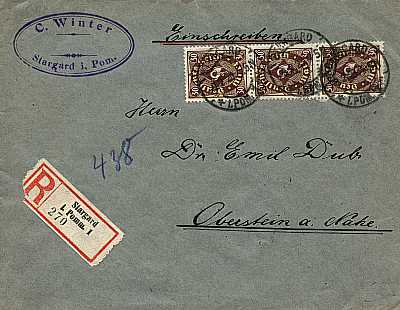 C. Winter
Stargard i. Pom.
Einschreiben
Herrn
438
Dr. Emil Dub
R
Stargard
i. Pomm. 1
270
Oberstein a. Nahe.